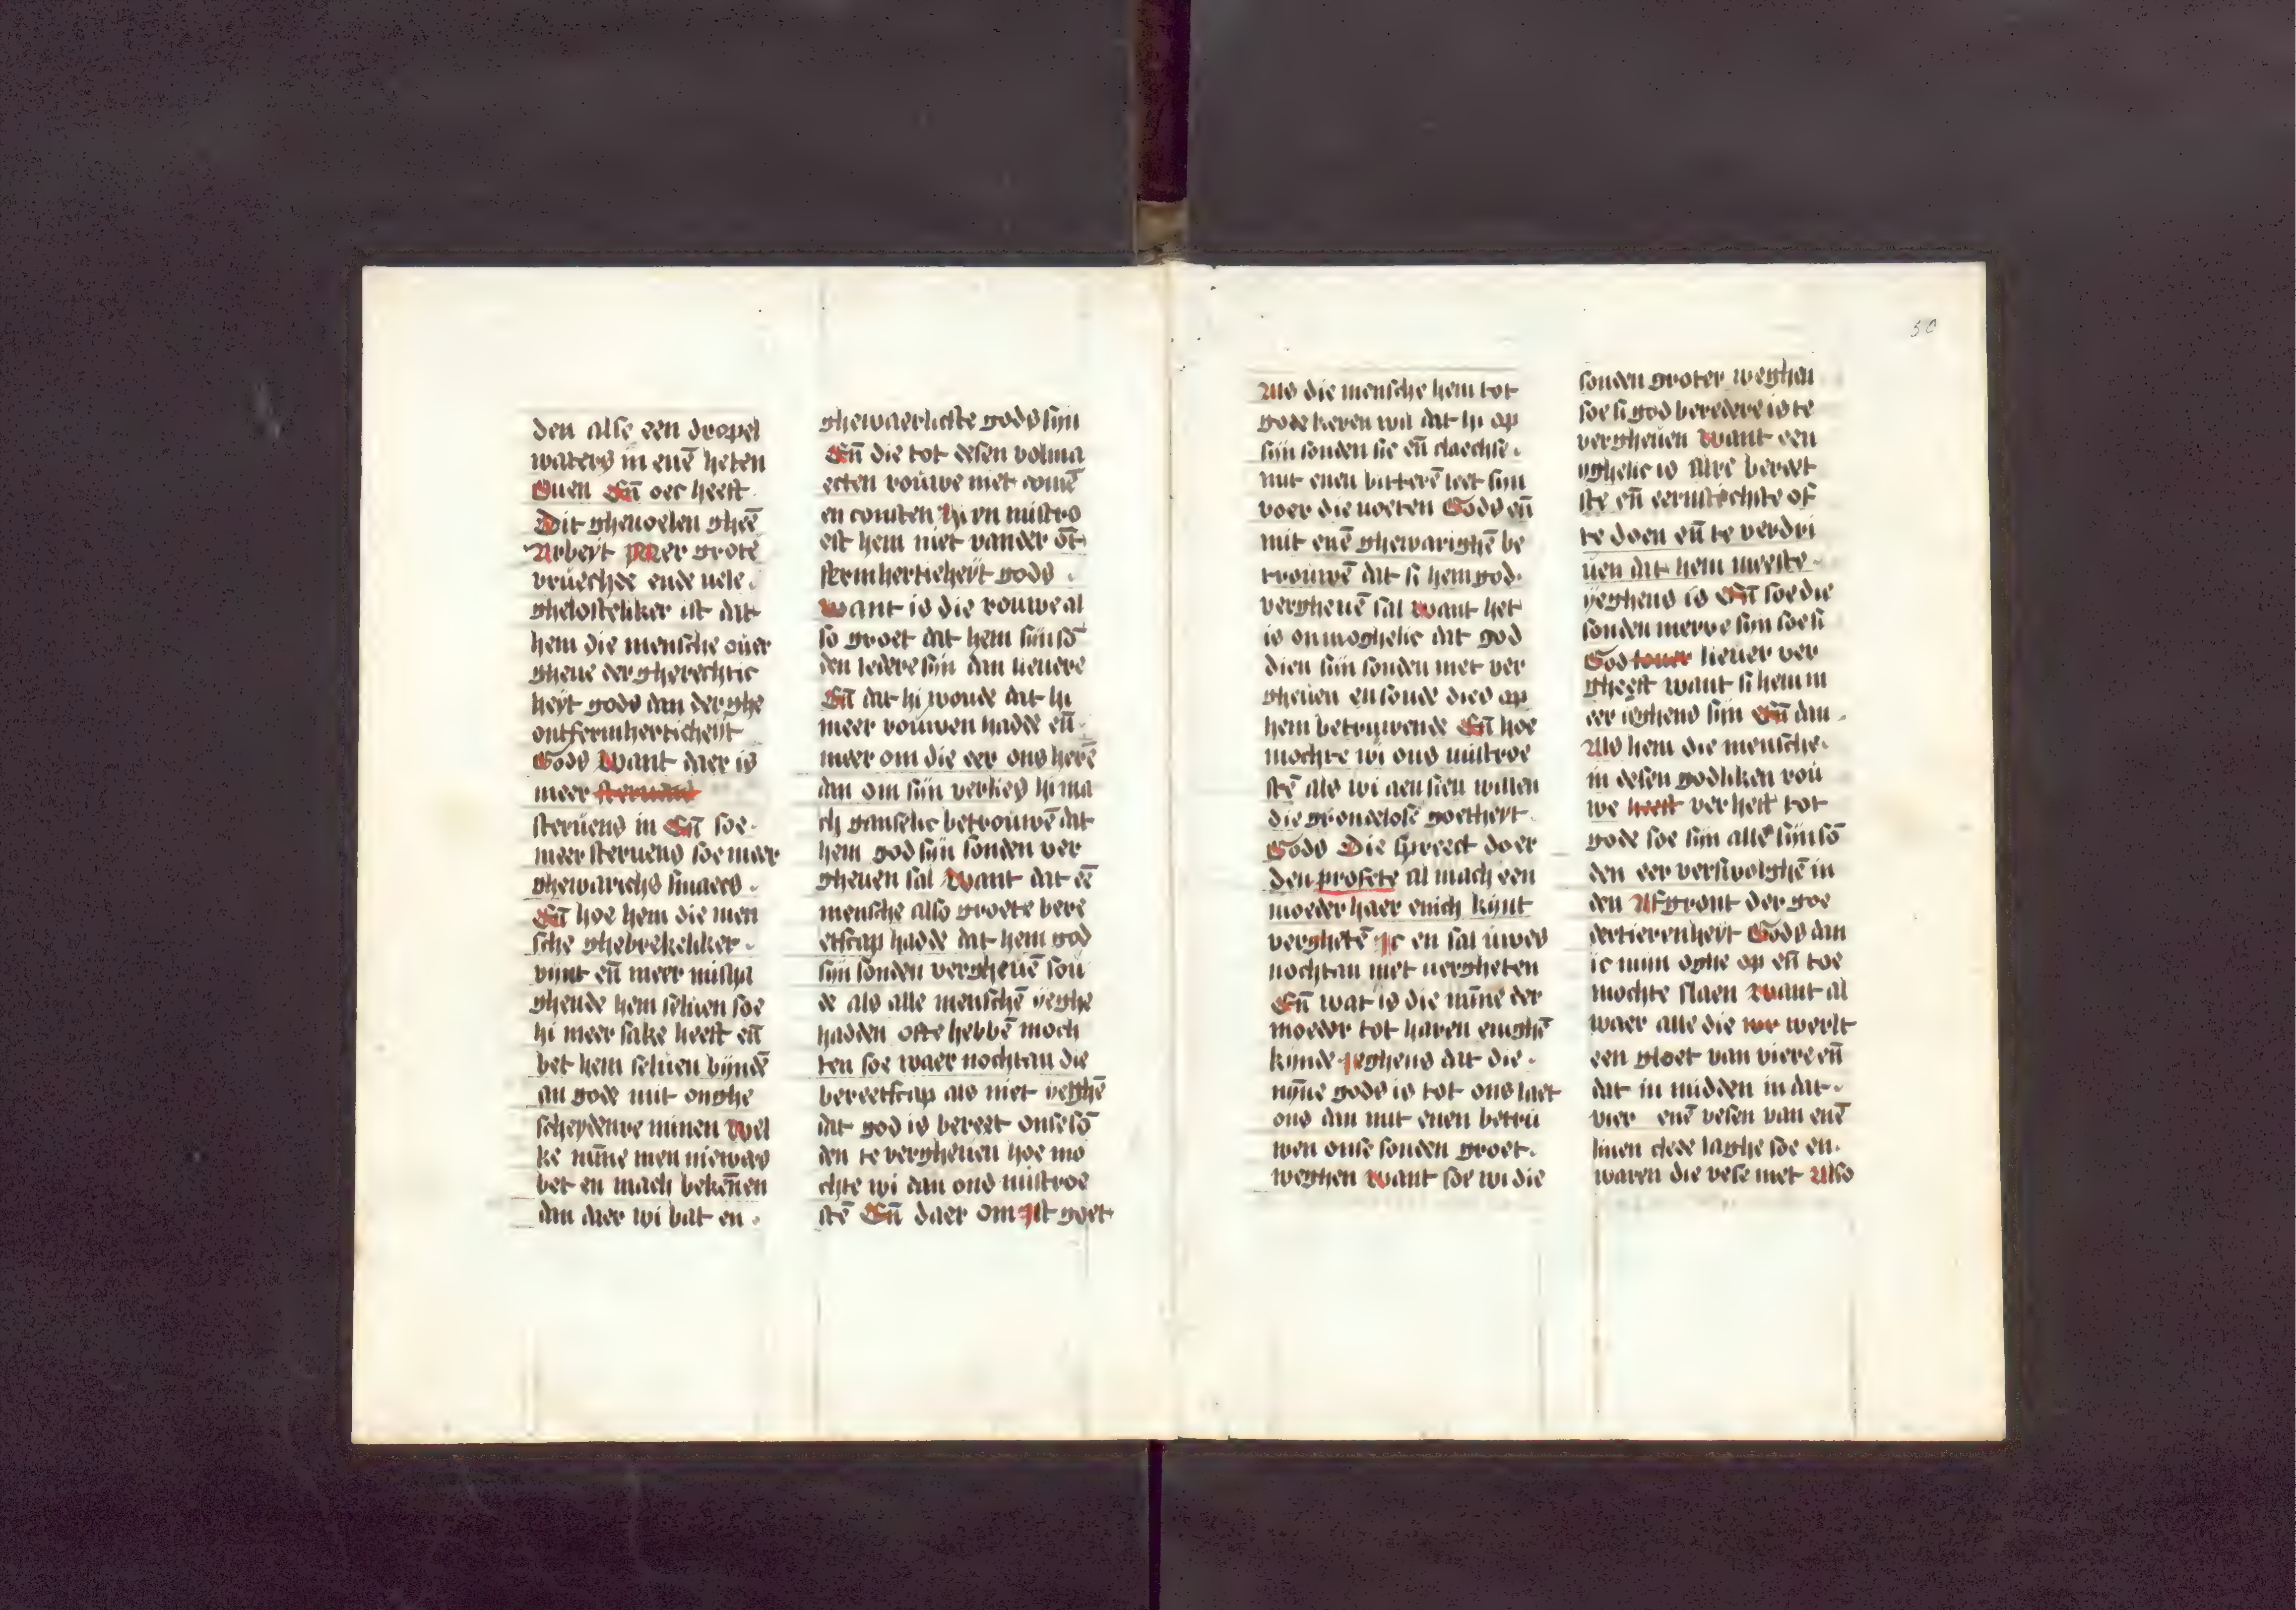 den alse een dropel
waters in enē heten
Ouen Eñ oec heeft
Dit gheuoelen gheē
Arbeyt Mer grote
vruechde ende uele
ghelosteliker ist dat
hem die mensche ouer
gheue der gherechtic
heyt gods dan der ghe
ontfermherticheyt
Gods Want daer is
meer steruens
steruens in Eñ soe
meer steruens soe meer
ghewarichs smaecs
Eñ hoe hem die men
sche ghebrekeliker
vynt eñ meer misha
ghende hem seluen soe
hi meer sake heeft eñ
bet hem seluen byndē
an gode mit onghe
scheydenre minen Wel
ke mīne men niewers
bet en mach bekēnen
dan daer wi bat en
ghewaerlicste gods sijn
Eñ die tot desen volma
ecten rouwe niet comē
en consten Hi en mistro
est hem niet vander ōt
fermherticheyt gods
Want is die rouwe al
so groet dat hem sijn sō
den leder sijn dan lieuere
Eñ dat hi woude dat hi
meer rouwen hadde eñ
meer om die eer ons herē
dan om sijn verlies hi ma
ch ganselic betrouwē dat
hem god sijn sonden ver
gheuen sal Want dat eē
mensche also groete bere
etscap hadde dat hem god
sijn sonden vergheuē sou
de als alle menschē yeghe
hadden ofte hebbē moch
ten soe waer nochtan die
bereetscap als niet yeghē
dat god is bereet onse sō
den te vergheuen hoe mo
chte wi dan ons mistroe
stē Eñ daer om ist goet
50
Als die mensche hem tot
gode keren wil dat hi op
sijn sonden sie eñ claechse
mit enen bitterē leet sijn
voer die uoeten Gods eñ
mit enē ghewarighē be
trouwē dat si hem god
vergheuē sal want het
is onmoghelic dat god
dien sijn sonden niet ver
gheuen en soude dies op
hem betruwende Eñ hoe
mochte wi ons mistroe
stē als wi aensien willen
die grondelose goetheyt
Gods Die spreect doer
den profete al mach een
moeder haer enich kynt
verghetē ic en sal uwes
nochtan niet uergheten
Eñ wat is die mīne der
moeder tot haren enighē
kynde Ieghens dat die
mȳne gods is tot ons laet
ons dan mit enen betru
wen onse sonden groet
weghen want soe wi die
sonden groter weghen
soe si god beredere is te
vergheuen Want een
yghelic is Alre bereet
ste eñ eernstechste of
te doen eñ te verdri
uen dat hem meeste
yeghens is Eñ soe die
sonden merre sijn soe si
God touer lieuer ver
gheeft want si hem m
eer ieghens sijn Eñ dan
Als hem die mensche
in desen godliken rou
we heeft verheft tot
gode soe sijn alle sijn sō
den eer verswolghē in
den Afgront der goe
dertierenheyt Gods dan
ic mijn oghe op eñ toe
mochte slaen Want al
waer alle die we werlt
een gloet van viere eñ
dat in midden in dat
vier enē vesen van enē
linen clede laghe soe en
waren die vese niet Also